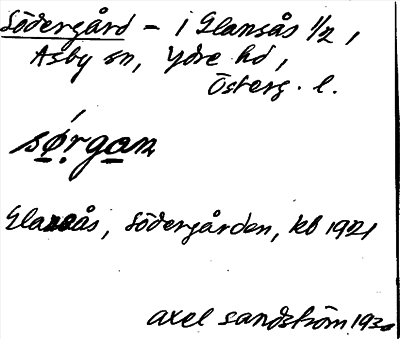 Södergård – i Glansås 1/2,
Asby sn, Ydre hd,
Österg. l.
sǿrgan
Glansås, Södergården, kb 1921
Axel Sandström 1930